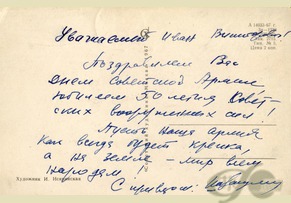 Уважаемый Иван Викторович!
Поздравляем Вас
днем Советской Армии
юбилеем 50 летия Совет-
ских вооруженных сил!
Пусть наша армия
Как всегда будет крепка
а на земле - мир всем
народам!
С приветом.
Художник И.